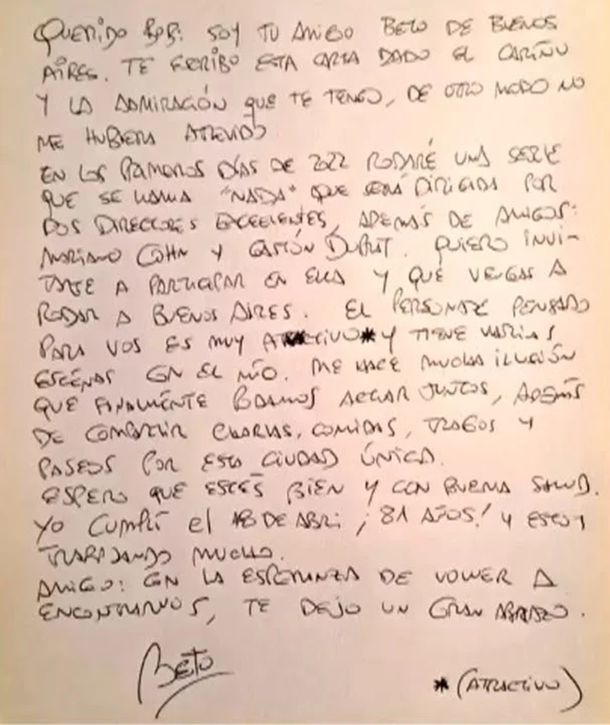 QUERIDO BOB: SOY TU AMIGO BETO DE BUENOS
AIRES. TE ESCRIBO ESTA CARTA DADO EL CARIÑO
Y LA ADMIRACIÓN QUE TE TENGO, DE OTRO MODO NO
ME HUBIERA ATREVIDO
EN LOS PRIMEROS DÍAS DE 2022 RODARÉ UNA SERIE
QUE SE LLAMA "NADA" QUE SERÁ DIRIGIDA POR
DOS DIRECTORES EXCELENTES, ADEMÁS DE AMIGOS:
MARIANO COHN Y GASTÓN DUPRAT. QUIERO INVI-
TARTE A PARTICIPAR EN ELLA Y QUE VENGAS A
RODAR A BUENOS AIRES. EL PERSONAJE PENSADO
PARA VOS ES MUY ATRACTIVO* Y TIENE VARIAS
ESCENAS CON EL MÍO. ME HACE MUCHA ILUSIÓN
QUE FINALMENTE PODAMOS ACTUAR JUNTOS, ADEMÁS
DE COMPARTIR CHARLAS, COMIDAS, TRAGOS Y
PASEOS POR ESTA CIUDAD ÚNICA.
ESPERO QUE ESTÉS BIEN Y CON BUENA SALUD.
YO CUMPLÍ EL 18 DE ABRIL ¡81 AÑOS! Y ESTOY
TRABAJANDO MUCHO.
AMIGO: CON LA ESPERANZA DE VOLVER A
ENCONTRARNOS, TE DEJO UN GRAN ABRAZO.
BETO
*(ATRACTIVO)